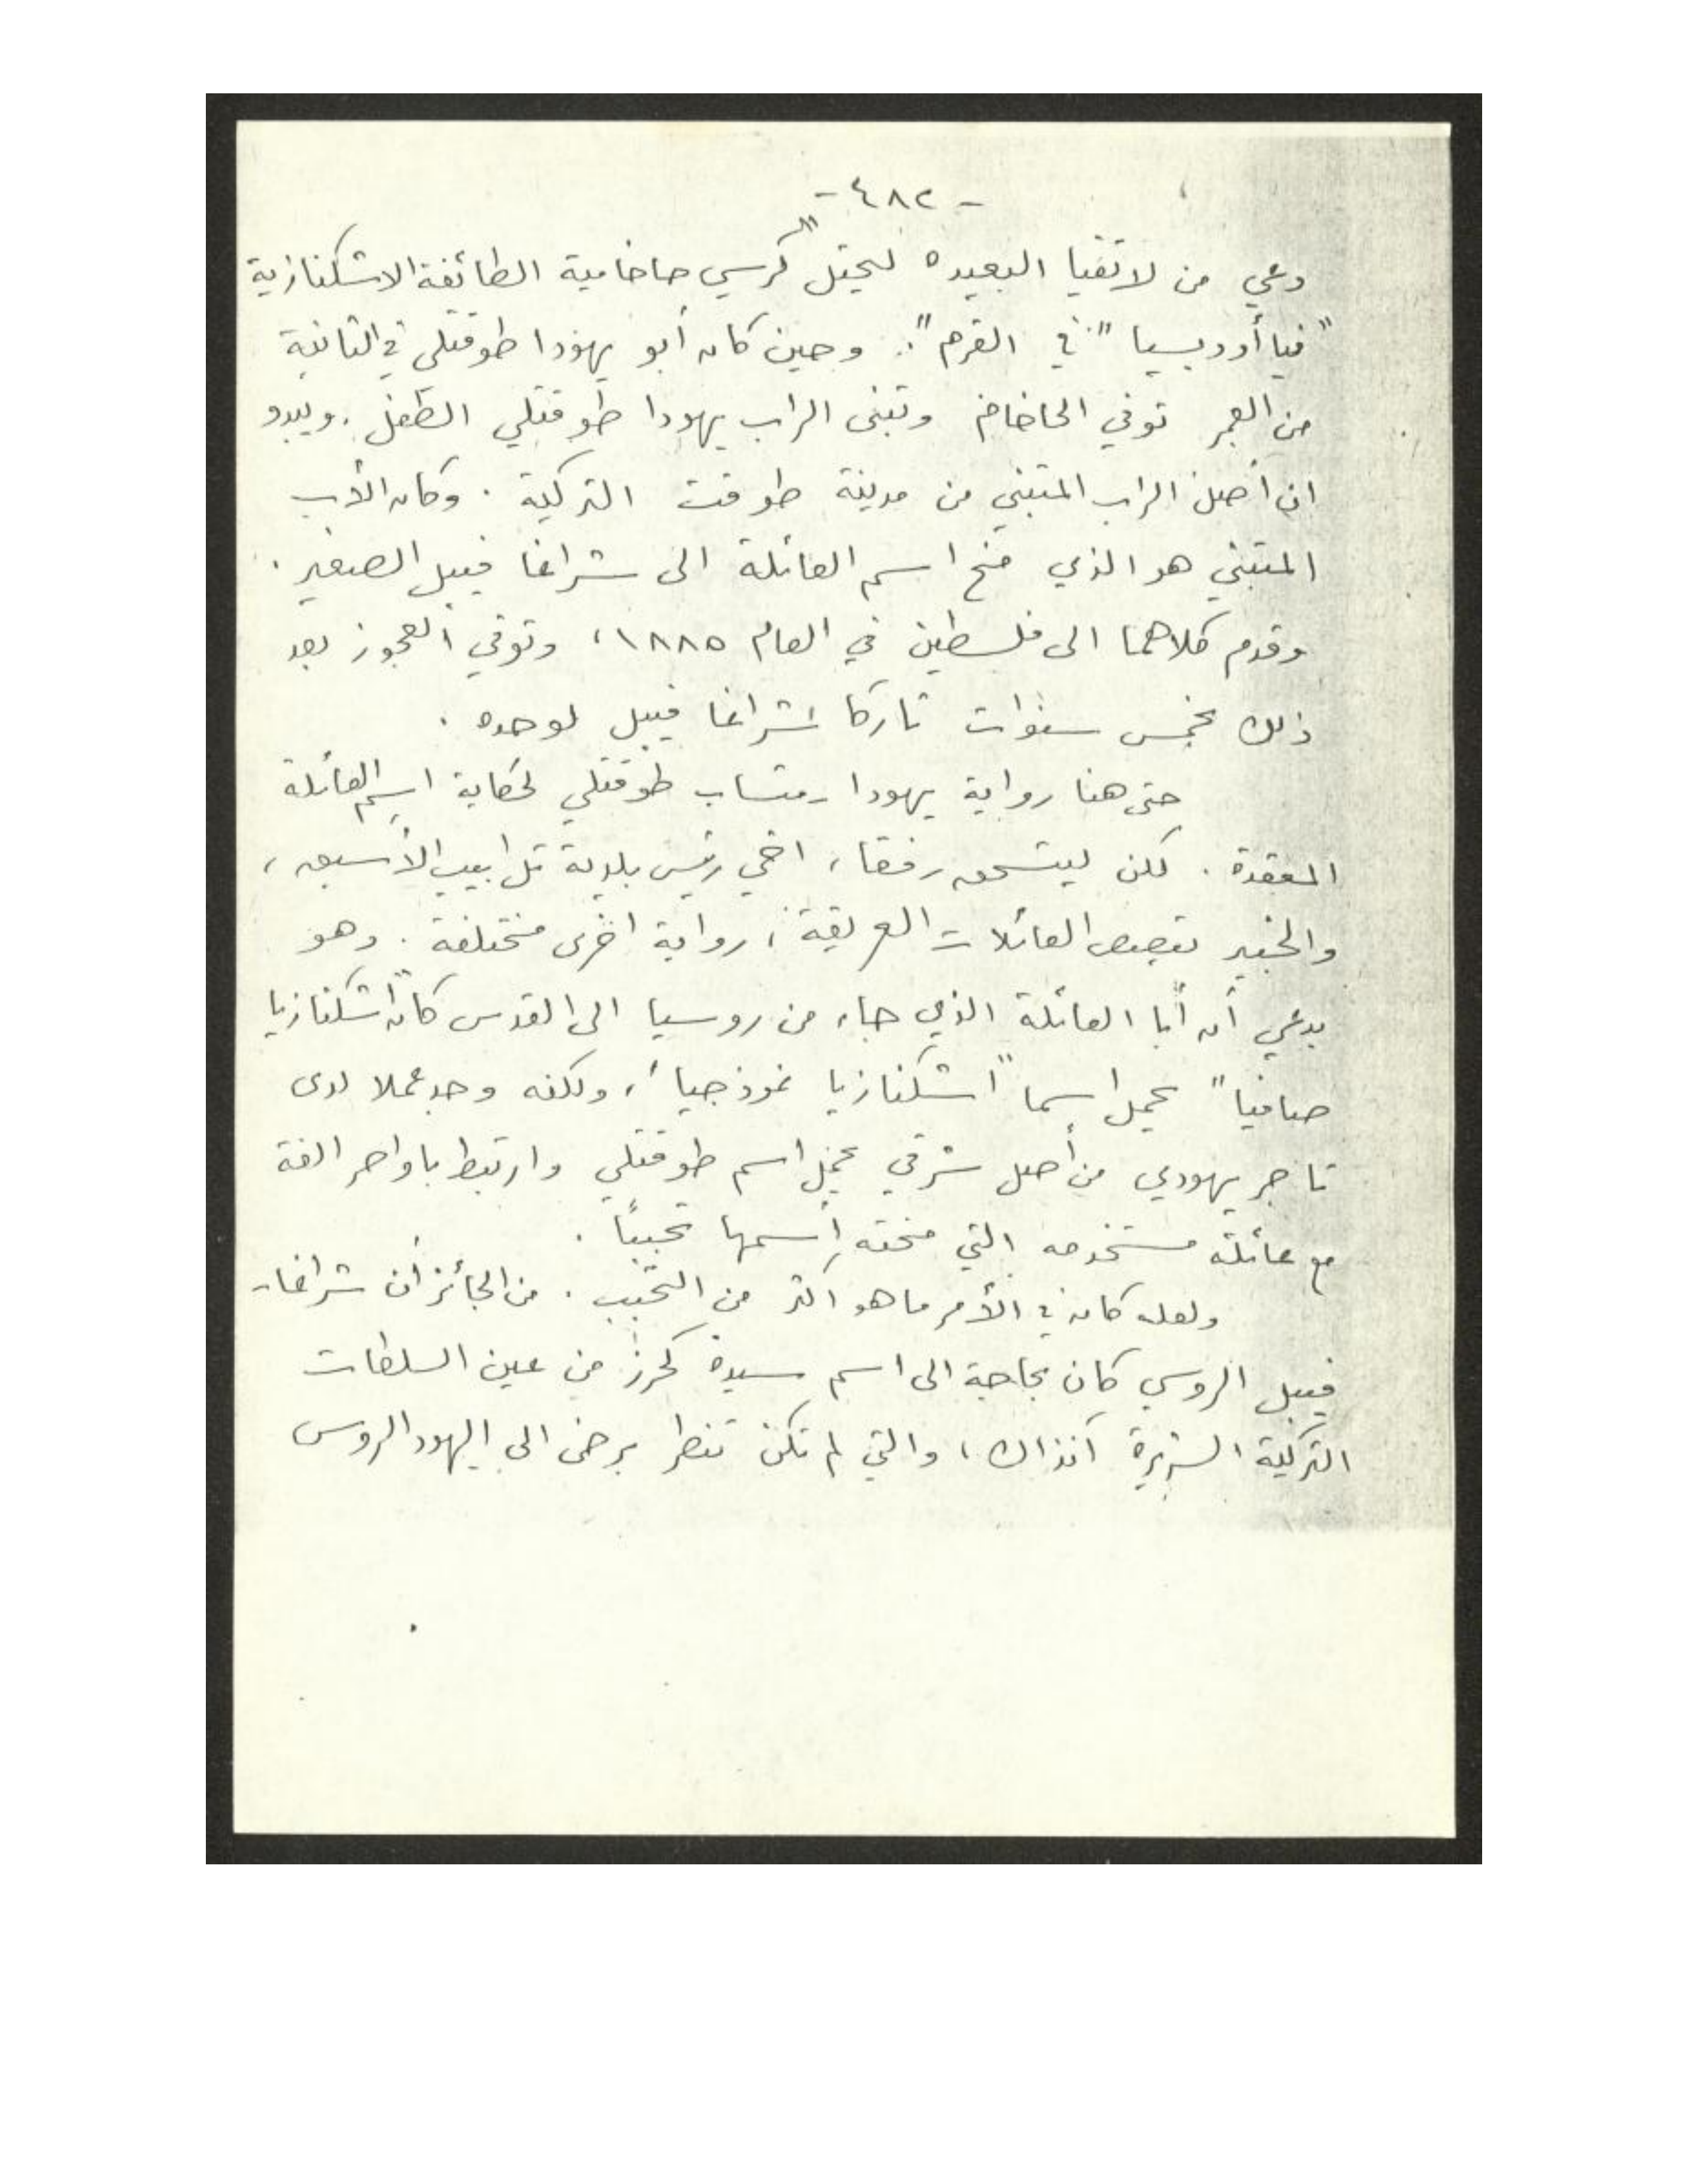 - ٤٨٢ -
دعي من لاتفيا البعيده ليحتل "كرسي حاخامية الطائفة الاشكنازية
"فيا أودبسيا" في القرم". وحين كان أبو يهودا طوقتلي في الثانية
من العمر توفي الحاخام وتبنى الراب يهودا طوقتلي الطفل. ويبدو
ان أصل الراب المتبني من مدينة طوقت التركية. وكان الأب
المتبني هو الذي منح اسم العائلة الى شراغا فيبل الصغير.
وقدم كلاهما الى فلسطين في العام ١٨٨٥، وتوفي العجوز بعد
ذلك بخمس سنوات تاركا شراغا فيبل لوحده.
حتى هنا رواية يهودا رمتساب طوقتلي لحكاية اسم العائلة
المعقدة. لكن ليتسحق رفقاء، اخي رئيس بلدية تل ابيب الأسبق،
والخبير بقصص العائلات العريقة، رواية اخرى مختلفة. وهو
يدعي أن أبا العائلة الذي جاء من روسيا الى القدس كان "اشكنازيا
صافيا" يحمل اسما "اشكنازيا نموذجيا"، ولكنه وجد عملا لدى
تاجر يهودي من أصل شرقي يحمل اسم طوقتلي وارتبط باواصر الفة
مع عائلة مستخدمه التي منحته إسمها تحببًا.
ولعله كان في الأمر ما هو اكثر من التحبب. من الجائز أن شراغا-
فيبل الروسي كان بحاجة الى اسم سيدة كحرز من عين السلطات
التركية الشريرة آنذاك، والتي لم تكن تنظر برضى الى اليهود الروس